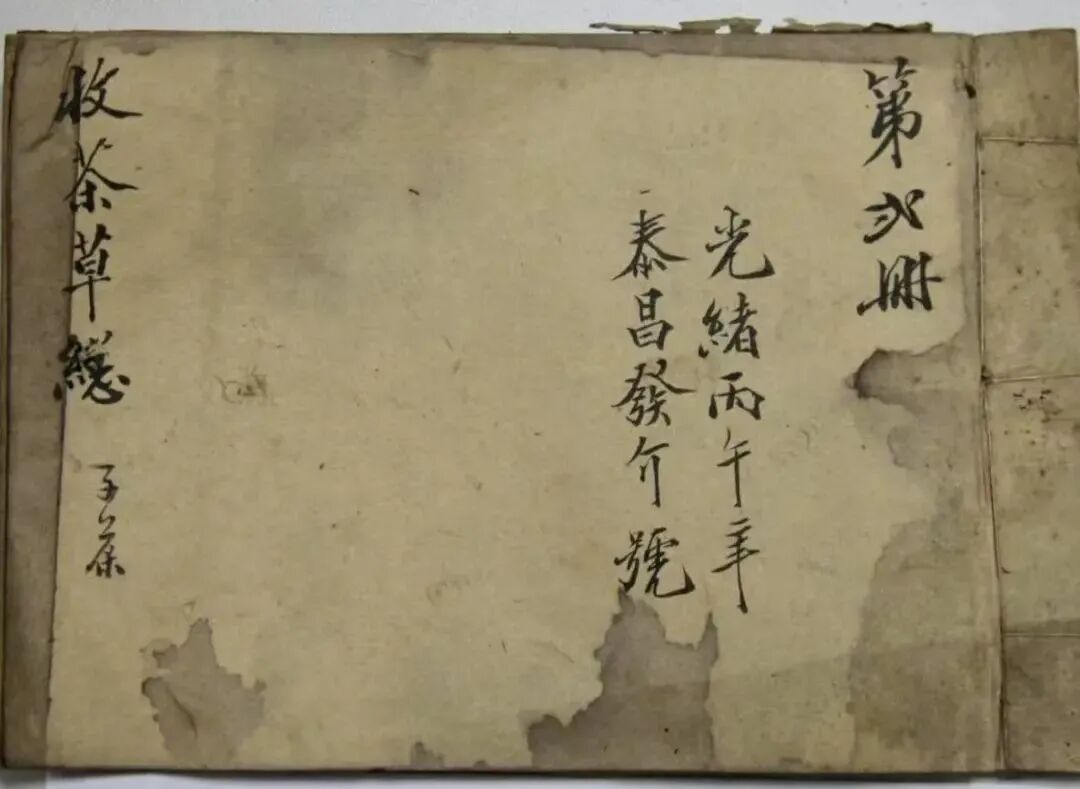 第弍册
光緒丙午年
泰昌發介號
收茶草總
子茶